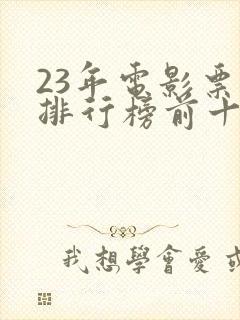 23年電影票
排行榜前十
我想學會愛或